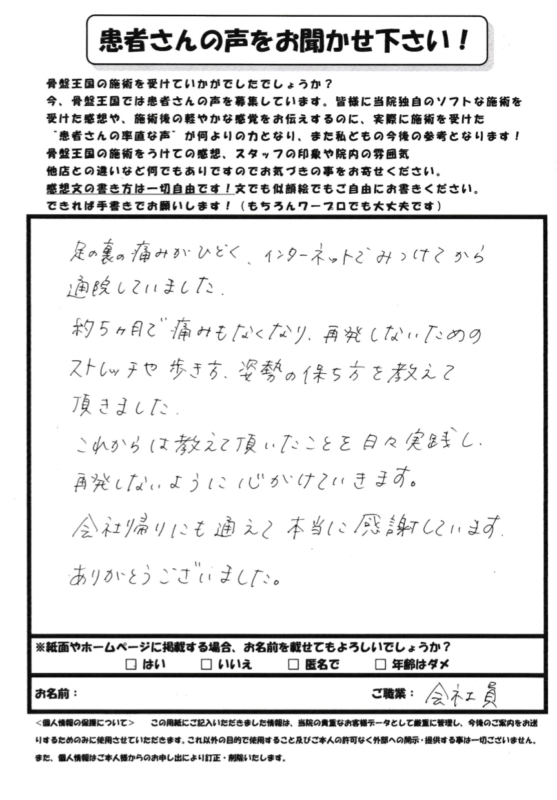 患者さんの声をお聞かせ下さい！
骨盤王国の施術を受けていかがでしたでしょうか？
今、骨盤王国では患者さんの声を募集しています。皆様に当院独自のソフトな施術を
受けた感想や、施術後の軽やかな感覚をお伝えするのに、実際に施術を受けた
"患者さんの率直な声"が何よりの力となり、また私どもの今後の参考となります！
骨盤王国の施術をうけての感想、スタッフの印象や院内の雰囲気
他店との違いなど何でもありですのでお気づきの事をお寄せください。
感想文の書き方は一切自由です！文でも似顔絵でもご自由にお書きください。
できれば手書きでお願いします！（もちろんワープロでも大丈夫です）
足の裏の痛みがひどく、インターネットでみつけてから
通院していました。
約5ヶ月で痛みもなくなり、再発しないための
ストレッチや歩き方、姿勢の保ち方を教えて
頂きました。
これからは教えて頂いたことを日々実践し、
再発しないように心がけていきます。
会社帰りにも通えて本当に感謝しています。
ありがとうございました。
※紙面やホームページに掲載する場合、お名前を載せてもよろしいでしょうか？
□ はい □ いいえ □ 匿名で □ 年齢はダメ
お名前： ご職業：会社員
＜個人情報の保障について＞ この用紙にご記入いただきました情報は、当院の貴重なお客様データとして厳重に管理し、今後のご案内をお送
りするためのみに使用させていただきます。これ以外の目的で使用すること及びご本人の許可なく外部への開示・提供する事は一切ございません。
また、個人情報はご本人様からのお申し出により訂正・削除いたします。